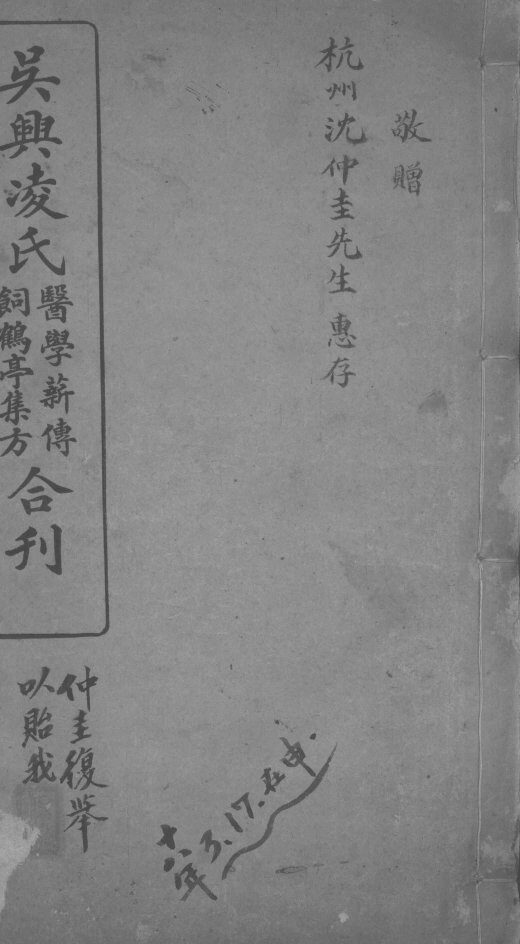 敬贈
杭州沈仲圭先生惠存
吳興凌氏
醫學薪傳
飼鶴亭集方
合刊
仲圭復舉
以貽我
十八年3.17.在申.